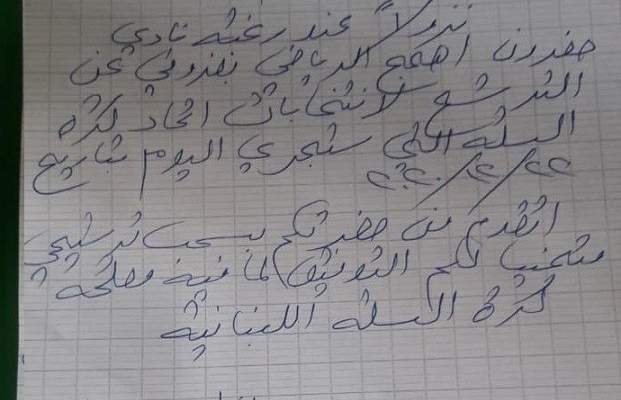 نزولاً عند رغبة نادي
حصرون اهمج الرياضي بعزوفي عن
الترشح لانتخابات اتحاد كرة
السلة التي ستجري اليوم بتاريخ
اتقدم من حضرتكم بسحب ترشيحي
متمنيا لكم التوفيق لما فيه مصلحة
كرة السلة اللبنانية